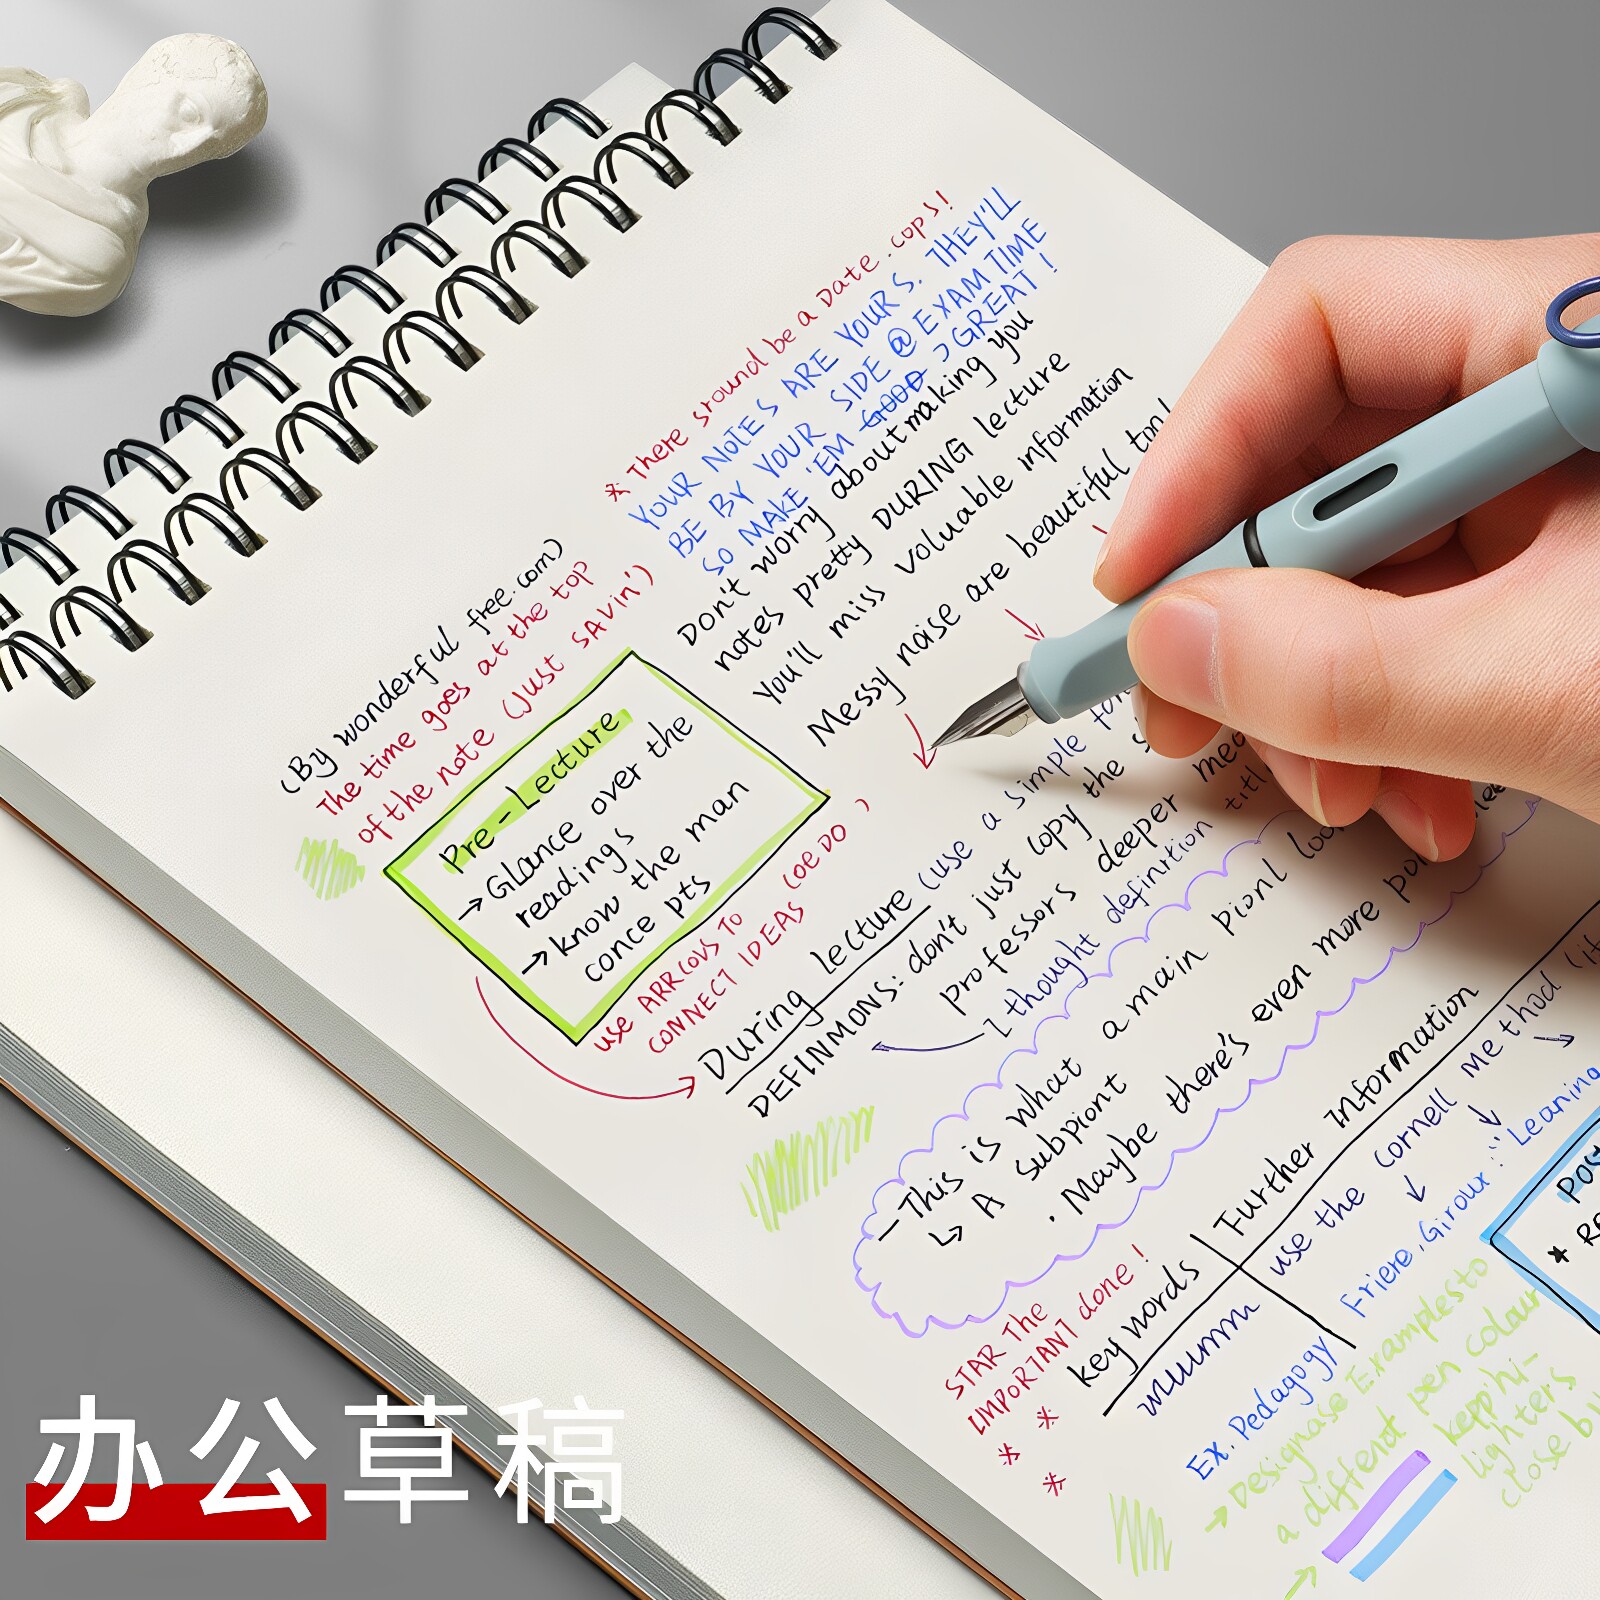 * There sround be a Date.cops!
YOUR NOTES ARE YOURS. THEY'LL
BE BY YOUR SIDE @ EXAM TIME
SO MAKE 'EM GOOD GREAT!
Don't worry about making you
notes pretty DURING lecture
You'll miss voluable information
Messy noise are beautiful too!
(By wonderful free.com)
The time goes at the top
of the note (Just SAvin')
Pre-Lecture
→ Glance over the
readings
→ know the man
conce pts
use ARROVS TO
CONNECT IDEAS (OE DO )
During lecture (use a simple
DEFINMONS: don't just copy the
professors deeper
I thought definrtion
- This is what a main pionl
↳ A subpiont
. Maybe there's even more
STAR The
IMPORTANT done!
* * *
key words
Further Information
use the Cornell method
Ex. Pedagogy Friere, Giroux Leaning
→ Designase Examplesto
a differiot pen colour
→ kepp hi-
lighters
close by
POST
* Re
办公草稿